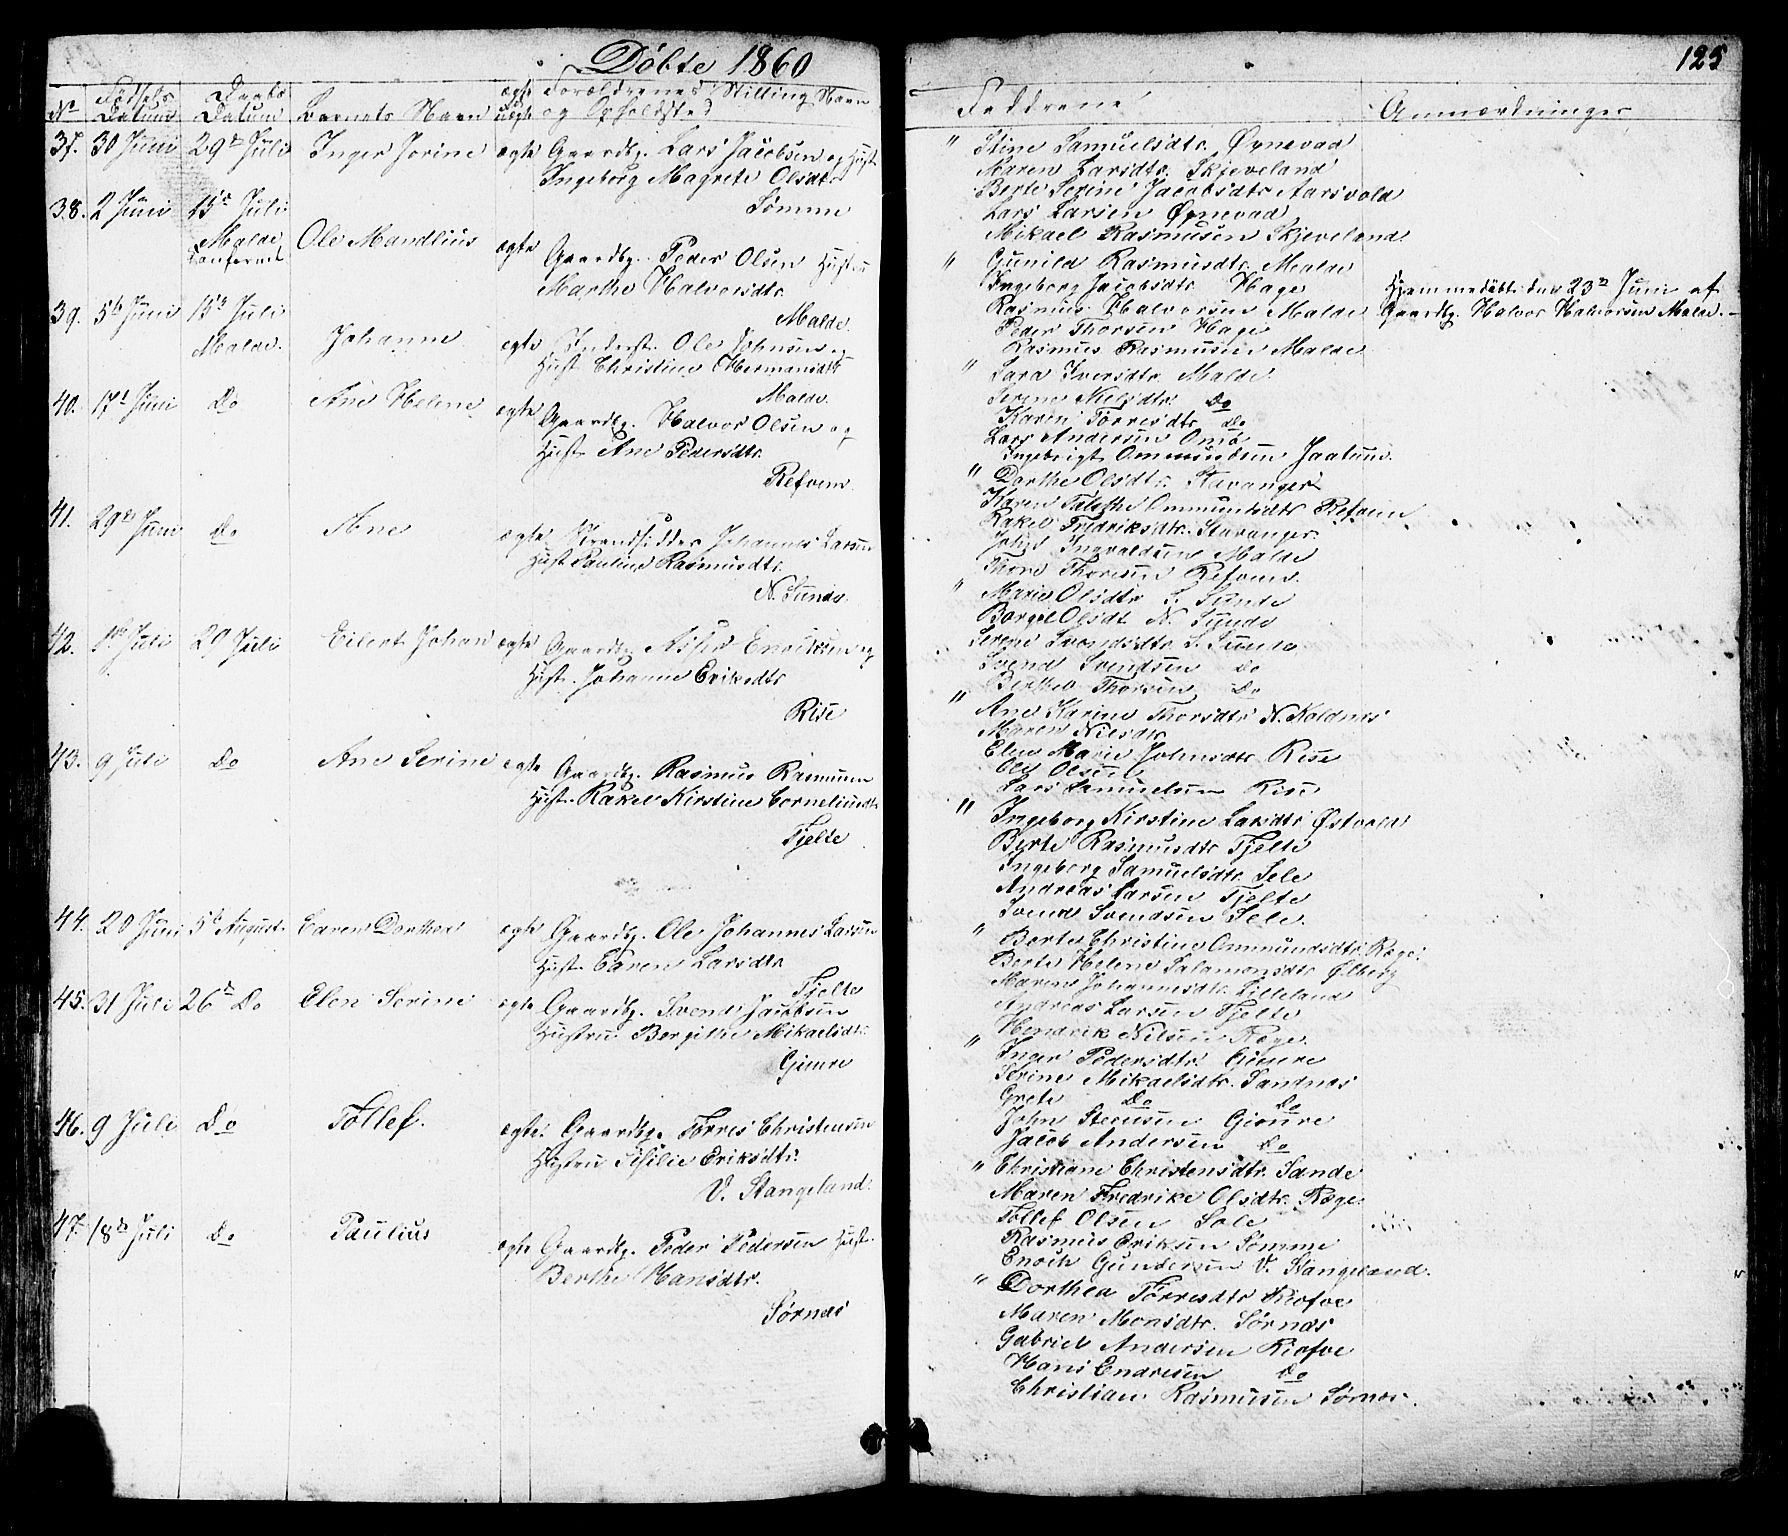 Döbte 1860
125
No
Födsels Datum
Daabs Datum
Barnets Navn
ægte
Forældrenes Stilling Navn
og Opholdsted
Faddrene
Anmærkninger
37. 30 Juni 29de Juli Inger Jorine ægte Gaardbg. Lars Jacobsen og Hust.
Ingeborg Magrete Olsdtr
Sømme
" Stine Samuelsdtr. Øvnevad
Maren Larsdtr. Skjeveland
Berte Serine Jacobsdtr Aarsvold
Lars Larsen Øvnevad
Mikael Rasmusen Skjeveland.
38. 2 Juni 15de Juli
Malde
Ole Mandlius ægte Gaardbg. Peder Olsen Hustru
Marthe Halvorsdtr.
Malde.
" Gunild Rasmusdtr. Malde
Ingeborg Jacobsdtr Hage
Rasmus Halvorsen Malde
Peder Thorsen Hage
Rasmus Rasmusen Malde
Hjemmedöbt den 23de Juni af
Gaardbg. Halvor Halvorsen Malde.
39. 5te Juni 15de Juli
Malde.
Johanne ægte Ole Johnsen og
Hust Christine Hermansdtr
Malde.
" Sara Iversdtr. Malde.
Serene Nelsdtr. Do
Karen Torresdtr do
Lars Andersen Omb.
Ingebrigt Ommundsen Jaatun.
40. 17de Juni Do Ane Helene ægte Gaardbg. Halvor Olsen og
Hust Ane Pedersdtr.
Refvem.
" Dorthe Olsdtr. Stavanger
Karen Ommundsdtr Refvem
Rakel Fredriksdtr. Stavanger
Ingvaldsen Malde
Thore Thoresen Refvem.
41. 29de Juni Do Ane ægte Strandsidder Johannes Larsen
Hust Pauline Rasmusdtr.
N. Sunde.
" Marie Olsdtr S. Sunde
Borgel Olsdt N. Sunde
Serene Svendsdtr S. Sunde
Svend Svendsen do
Berthel Thorsen Do
42. 1ste Juli 29 Juli Eilert Johan ægte Gaardbg. Asser Enoksen og
Hust. Johanne Eriksdtr
Rise
" Ane Karine Thorsdtr N. Koldnes
Maren Nilsdtr
Elen Marie Johnsdtr. Rise
Ole Olsen
Lars Samuelsen Rise
43. 9 Juli Do Ane Serine ægte Gaardbg. Rasmus Rasmusen
Hust. Rakel Kirstine Corneliusdtr
Tjelte
" Ingeborg Kirstine Larsdtr Østvold
Berte Rasmusdtr Tjelte
Ingeborg Samuelsdtr. Sele
Andreas Larsen Tjelte
Svend Svendsen Sele.
44. 20 Juni 5te August. Caren Dorthea ægte Gaardbg. Ole Johannes Larsen
Hust. Caren Larsdtr.
Tjelte
" Berte Christine Ommundsdtr. Ræge.
Berte Helene Salamonsdtr Ølberg
Maren Johannesdtr. Lilleland
Andreas Larsen Tjelte
Hendrik Nilsen Ræge.
45. 31 Juli 26de Do Elen Serine ægte Gaardbg. Svend Jacobsen
Hustru Bergithe Mikaelsdtr.
Gimre
" Inger Pedersdtr. Gimre
Serine Mikaelsdtr. Sandnes
Grete Do Do
John Steensen Gimre
Jacob Andersen Do
46. 9 Juli Do Tollef. ægte. Gaardbg. Torres Christensen
Hustru Sisilie Eriksdtr.
V. Stangeland.
" Christiane Christensdtr. Sande
Maren Fredrike Olsdtr. Ræge
Tollef Olsen Sole
Rasmus Eriksen Sømme
Enoch Gundersen V. Stangeland.
47. 18de Juli do Paulius ægte Gaardbg. Peder Pedersen Hust.
Berthe Hansdtr.
Sørnæs
" Dorthea Torresdtr Riofve
Maren Monsdtr. Sørnæs
Gabriel Andersen Riofve
Hans Endresen Do
Christian Rasmusen Sørnæs.